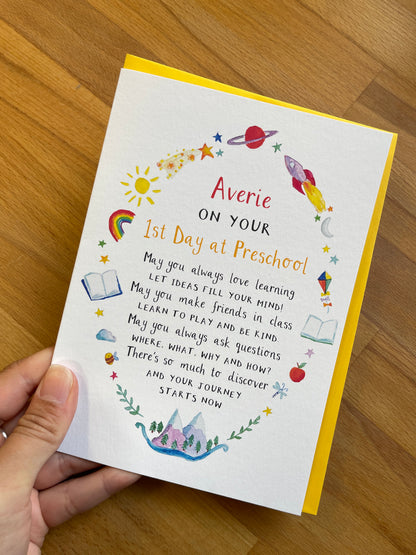 Averie
ON YOUR
1st Day at Preschool
May you always love learning
LET IDEAS FILL YOUR MIND!
May you make friends in class
LEARN TO PLAY AND BE KIND
May you always ask questions
WHERE, WHAT, WHY AND HOW?
There's so much to discover
AND YOUR JOURNEY
STARTS NOW